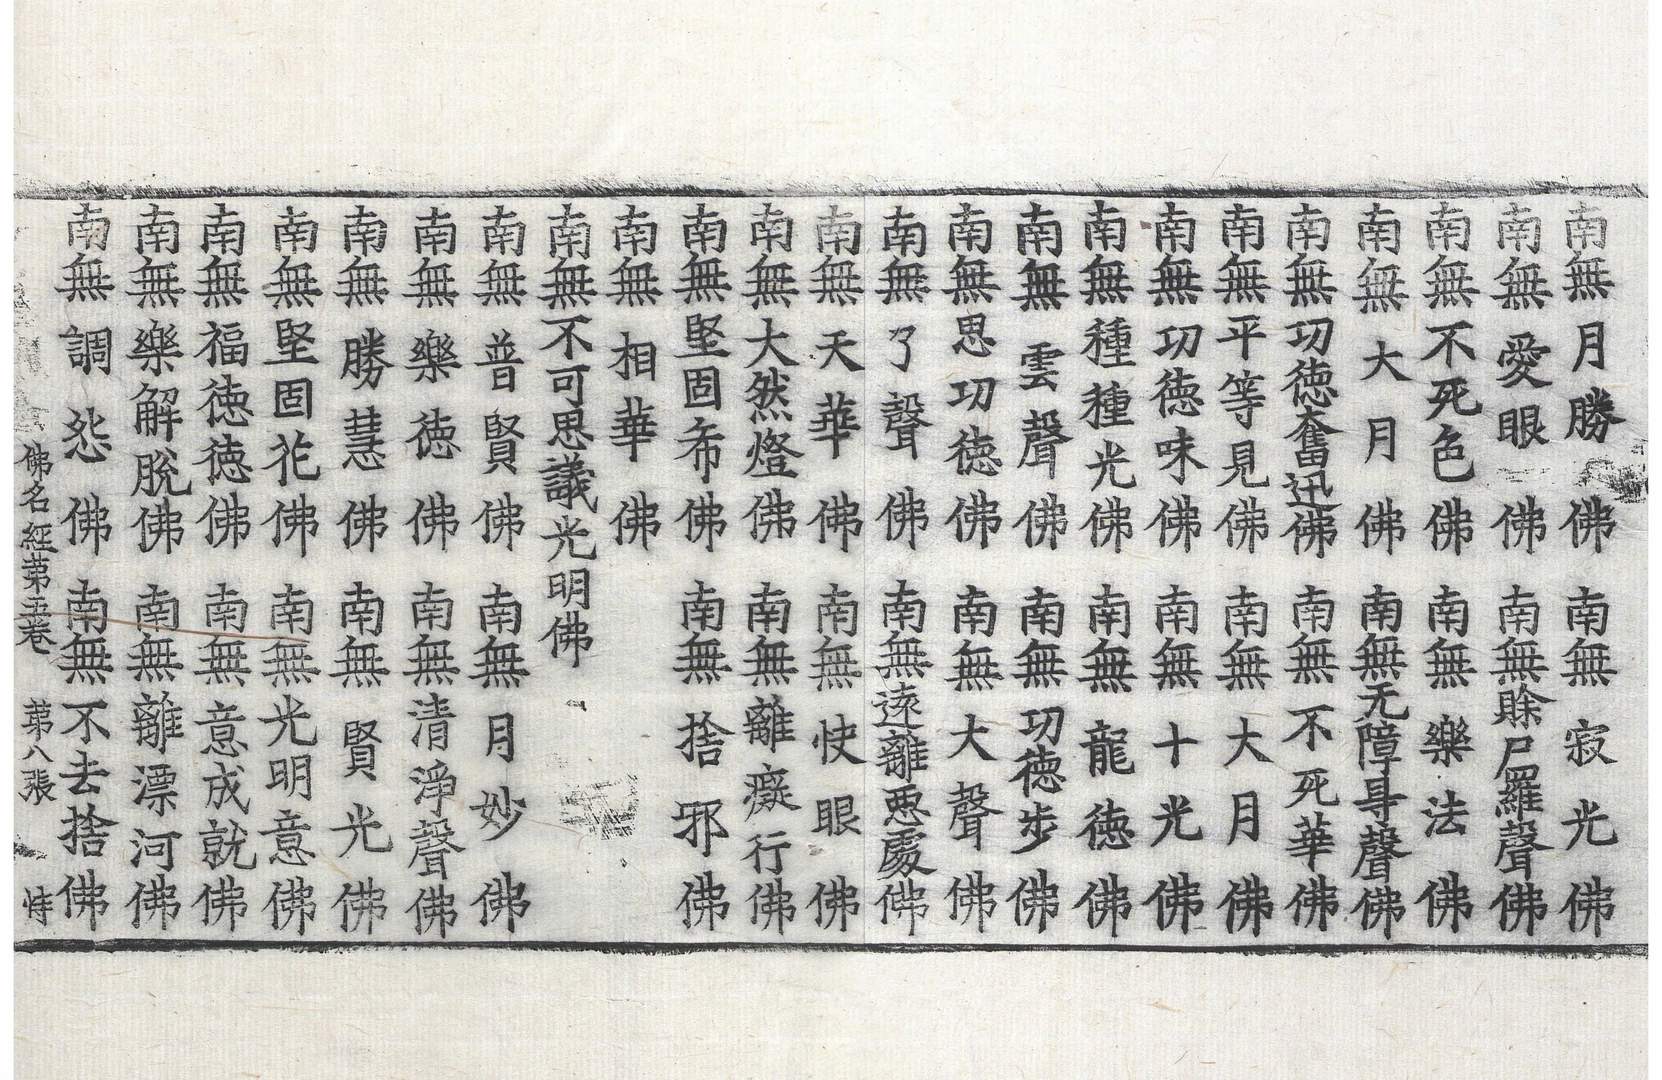 南無月勝佛 南無寂光佛
南無愛眼佛 南無賒尸羅聲佛
南無不死色佛 南無樂法佛
南無大月佛 南無无障㝵聲佛
南無功徳奮迅佛 南無不死華佛
南無平等見佛 南無大月佛
南無功徳味佛 南無十光佛
南無種種光佛 南無龍徳佛
南無雲聲佛 南無功徳步佛
南無思功徳佛 南無大聲佛
南無了聲佛 南無遠離惡處佛
南無天華佛 南無快眼佛
南無大然燈佛 南無離癡行佛
南無堅固希佛 南無捨邪佛
南無相華佛
南無不可思議光明佛
南無普賢佛 南無月妙佛
南無樂徳佛 南無清淨聲佛
南無勝慧佛 南無賢光佛
南無堅固花佛 南無光明意佛
南無福徳徳佛 南無意成就佛
南無樂解脫佛 南無離漂河佛
南無調怨佛 南無不去捨佛
佛名經苐五卷 苐八張 恃